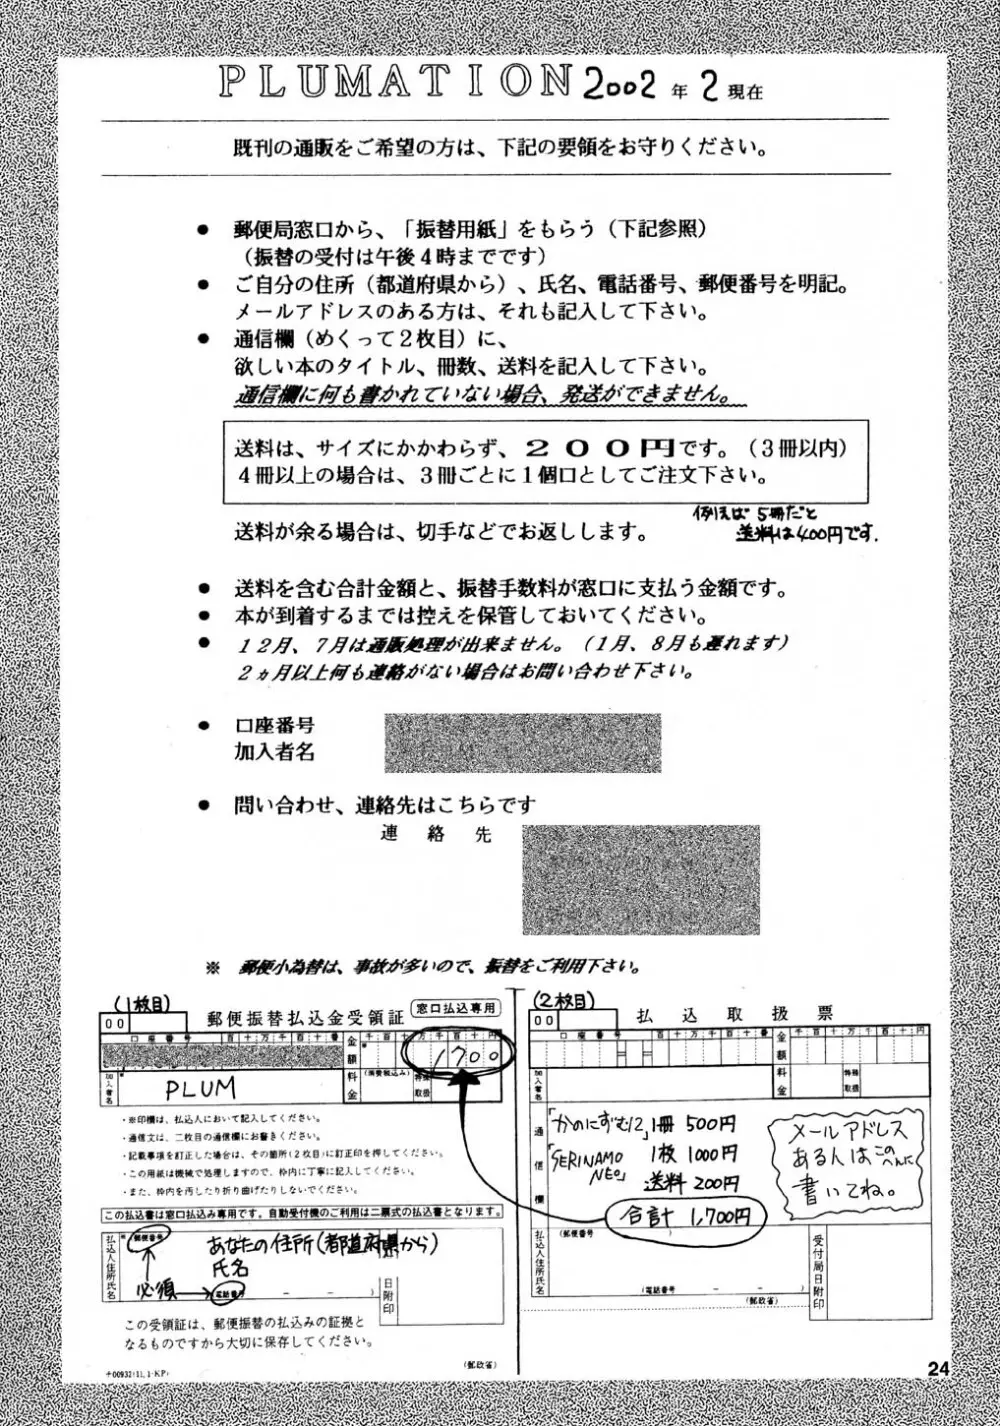 PLUMATION 2002年2現在
既刊の通販をご希望の方は、下記の要領をお守りください。
● 郵便局窓口から、「振替用紙」をもらう（下記参照）
（振替の受付は午後４時までです）
● ご自分の住所（都道府県から）、氏名、電話番号、郵便番号を明記。
メールアドレスのある方は、それも記入して下さい。
● 通信欄（めくって２枚目）に、
欲しい本のタイトル、冊数、送料を記入して下さい。
通信欄に何も書かれていない場合、発送ができません。
送料は、サイズにかかわらず、２００円です。（３冊以内）
４冊以上の場合は、３冊ごとに１個口としてご注文下さい。
送料が余る場合は、切手などでお返しします。
例えば5冊だと
送料は400円です.
● 送料を含む合計金額と、振替手数料が窓口に支払う金額です。
● 本が到着するまでは控えを保管しておいてください。
● １２月、７月は通販処理が出来ません。（１月、８月も遅れます）
２ヵ月以上何も連絡がない場合はお問い合わせ下さい。
● 口座番号
加入者名
● 問い合わせ、連絡先はこちらです
連絡先
※ 郵便小為替は、事故が多いので、振替をご利用下さい。
(1枚目)
00
郵便振替払込金受領証
窓口払込専用
口座番号
百十万千百十番
金額
千百十万千百十円
1700
加入者名
PLUM
料金
(消費税込み)
特殊取扱
・※印欄は、払込人において記入してください。
・通信文は、二枚目の通信欄にお書きください。
・記載事項を訂正した場合は、その箇所(２枚目)に訂正印を押してください。
・この用紙は機械で処理しますので、枠内に丁寧に記入してください。
・また、枠内を汚したり折り曲げたりしないでください。
この払込書は窓口払込み専用です。自動受付機のご利用は二票式の払込書となります。
払込人住所氏名
*郵便番号
あなたの住所(都道府県から)
氏名
必須
電話番号
日附印
この受領証は、郵便振替の払込みの証拠と
なるものですから大切に保存してください。
(郵政省)
(2枚目)
00
払込取扱票
口座番号
百十万千百十番
金額
千百十万千百十円
加入者名
料金
特殊取扱
通信欄
「かのにずむ12」1冊 500円
「SERINAMO NEO」 1枚 1000円
送料 200円
合計 1,700円
メールアドレス
ある人はこのへんに
書いてね。
払込人住所氏名
(郵便番号 )
(電話番号 - - )
(郵政省)
受付局日附印
24